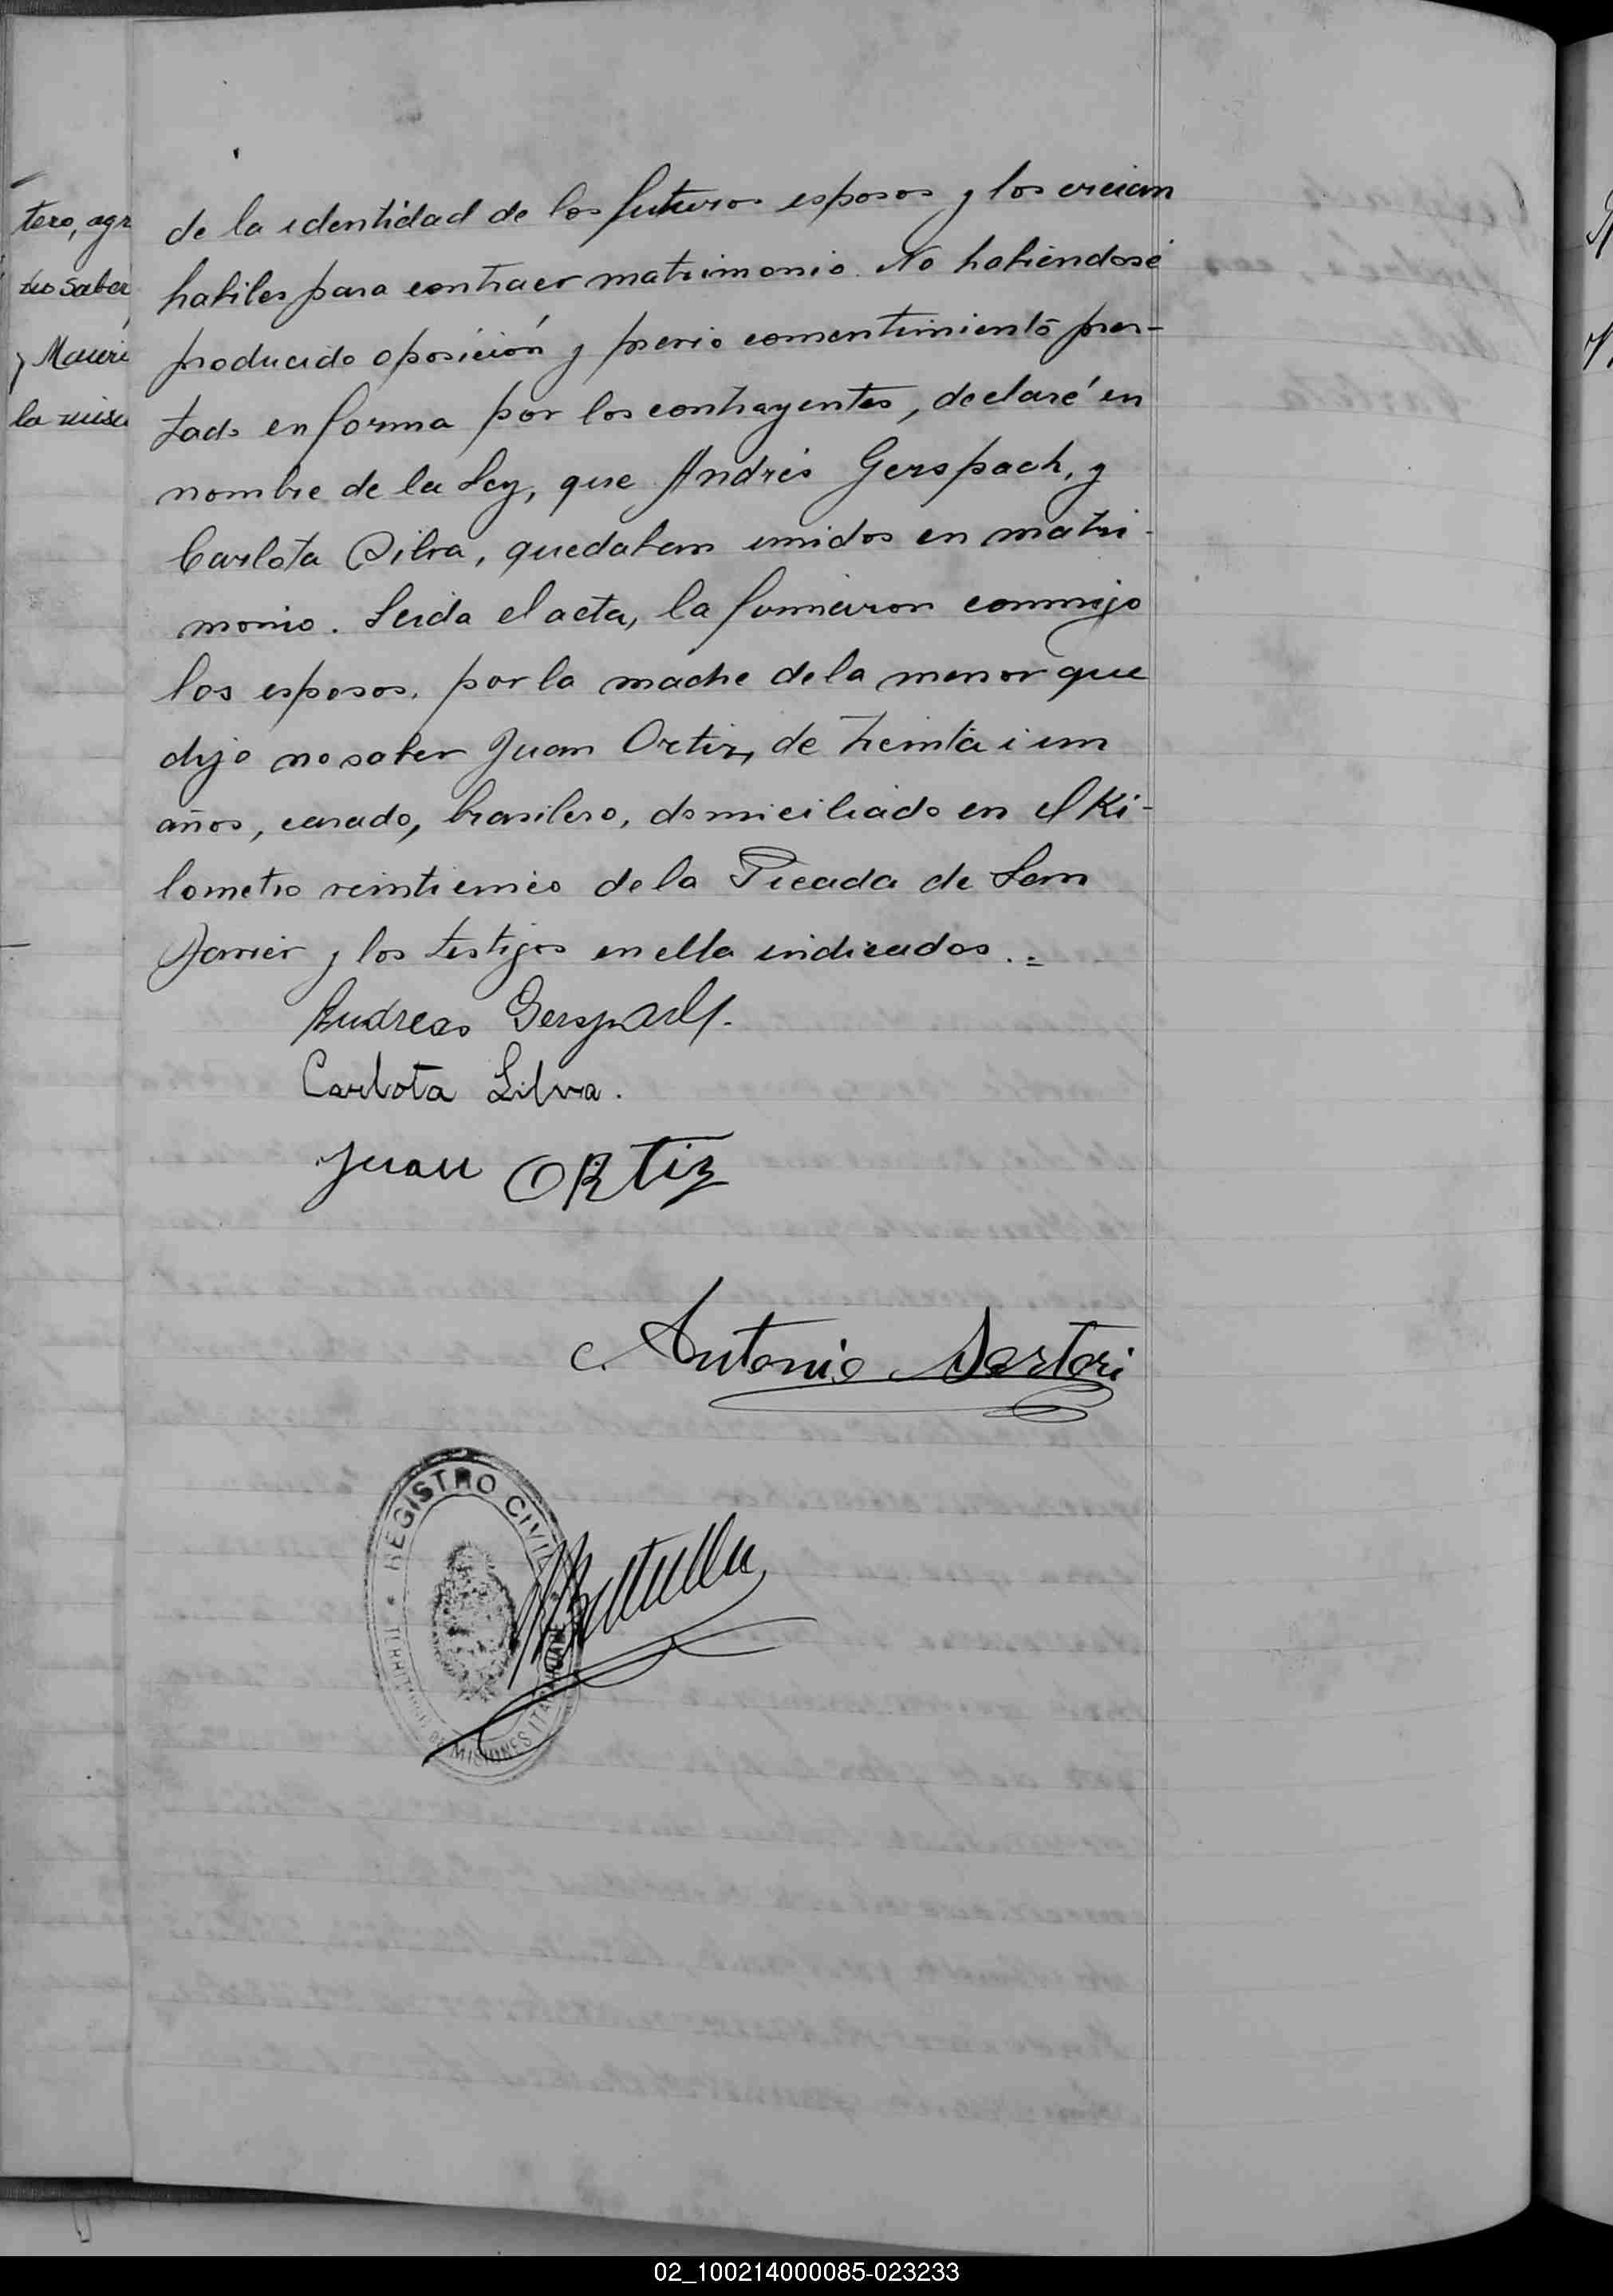 tero, agr
no saber
y Mauri
la mism
de la identidad de los futuros esposos y los creian
habiles para contraer matrimonio. No habiéndose
producido oposición y previo consentimiento pres-
tado en forma por los contrayentes, declaré en
nombre de la Ley, que Andrés Gerspach, y
Carlota Silva, quedaban unidos en matri-
monio. Leida el acta, la firmaron conmigo
los esposos, por la madre de la menor que
dijo no saber Juan Ortiz, de treinta i un
años, casado, brasilero, domiciliado en el Ki-
lometro veinticinco de la Picada de San
Javier y los testigos en ella indicados.=
Andreas Gerspach.
Carlota Silva.
Juan ORtiz
Antonio Sartori
REGISTRO CIVIL
TERRITORIO DE MISIONES
02_100214000085-023233